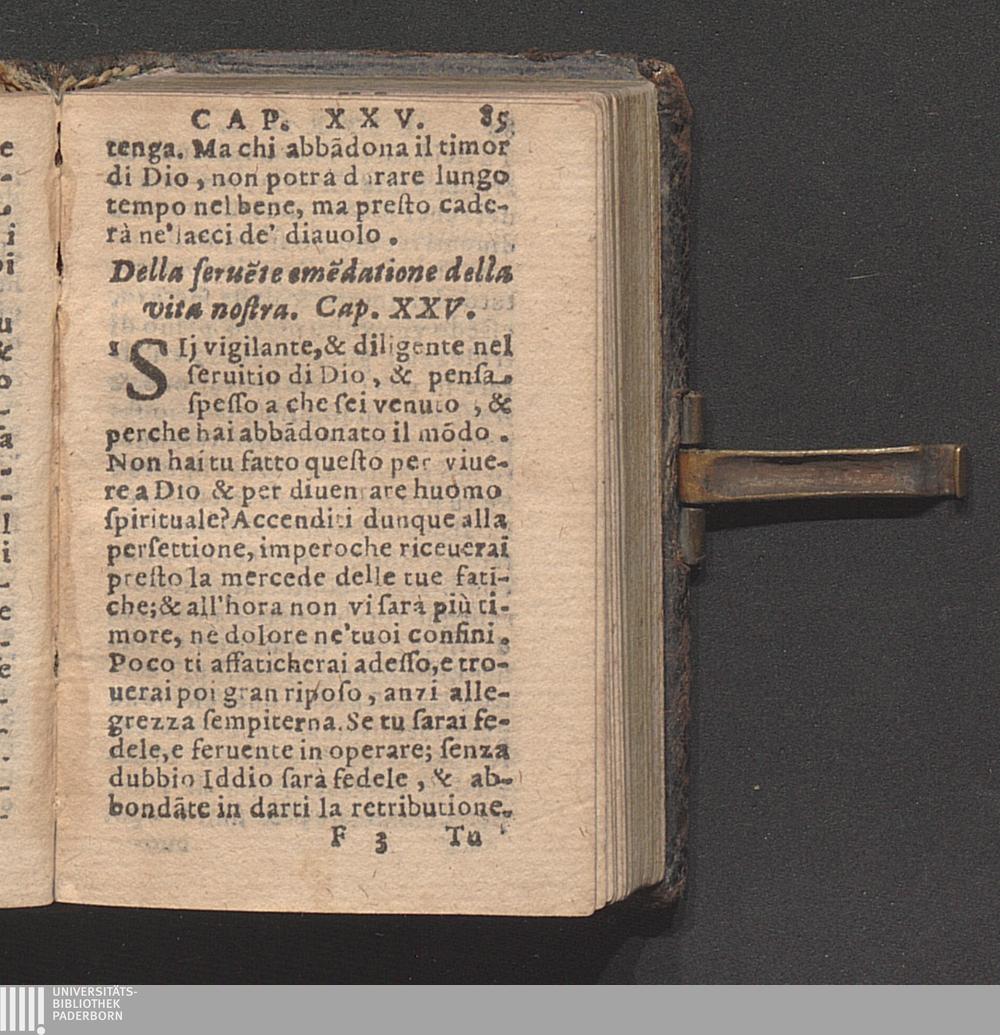 CAP. XXV. 85
tenga. Ma chi abbãdona il timor
di Dio, non potrà durare lungo
tempo nel bene, ma preſto cade-
rà ne' lacci de' diauolo.
Della feruẽte emẽdatione della
vita noſtra. Cap. XXV.
1 SIj vigilante, & diligente nel
ſeruitio di Dio, & penſa
ſpeſſo a che ſei venuto, &
perche hai abbãdonato il mõdo.
Non hai tu fatto queſto per viue-
re a Dio & per diuentare huomo
ſpirituale? Accenditi dunque alla
perfettione, imperoche riceuerai
preſto la mercede delle tue fati-
che; & all'hora non vi ſarà più ti-
more, ne dolore ne' tuoi confini.
Poco ti affaticherai adeſſo, e tro-
uerai poi gran ripoſo, anzi alle-
grezza ſempiterna. Se tu ſarai fe-
dele, e feruente in operare; ſenza
dubbio Iddio ſarà fedele, & ab-
bondãte in darti la retributione.
F 3 Tu
UNIVERSITÄTS-
BIBLIOTHEK
PADERBORN